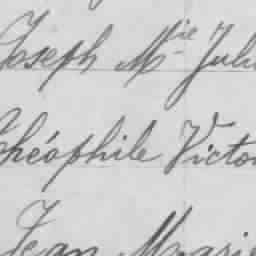 Joseph Mie Juli
Théophile Victo
Jean Marie